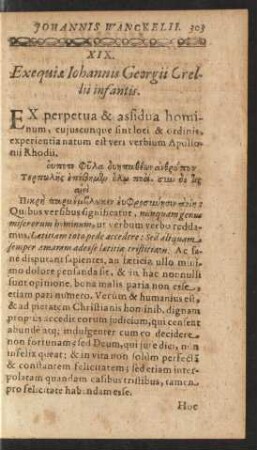 JOHANNIS WANCKELII. 303
XIX.
Exequiæ Iohannis Georgii Crel-
lii infantis.
EX perpetua & assidua homi-
num, cujuscunque sint loci & ordinis,
experientia natum est veri verbium Apollo-
nii Rhodii.
Quibus versibus significatur, nunquam genus
miserorum hominum, ut verbum verbo redda-
tur, lætitiam toto pede accedere: Sed aliquam
semper amarem adesse lætitiæ tristitiem. Ac sa-
ne disputant sapientes, an lætitia ullo mini-
mo dolore pensanda sit, & in hac non nulli
sunt opinione, bona malis paria non esse,
etiam pari numero. Verum & humanius est,
& ad pietatem Christianis hominib. dignam
propius accedit eorum judicium, qui censent
abunde atq; indulgenter cum eo decidere
non fortunam sed Deum, qui jure dici non
infelix queat: & in vita non solum perfectâ
& constantem felicitatem; sed etiam inter-
polatam quandam casibus tristibus, tamen
pro felicitate habendam esse.
Hoc